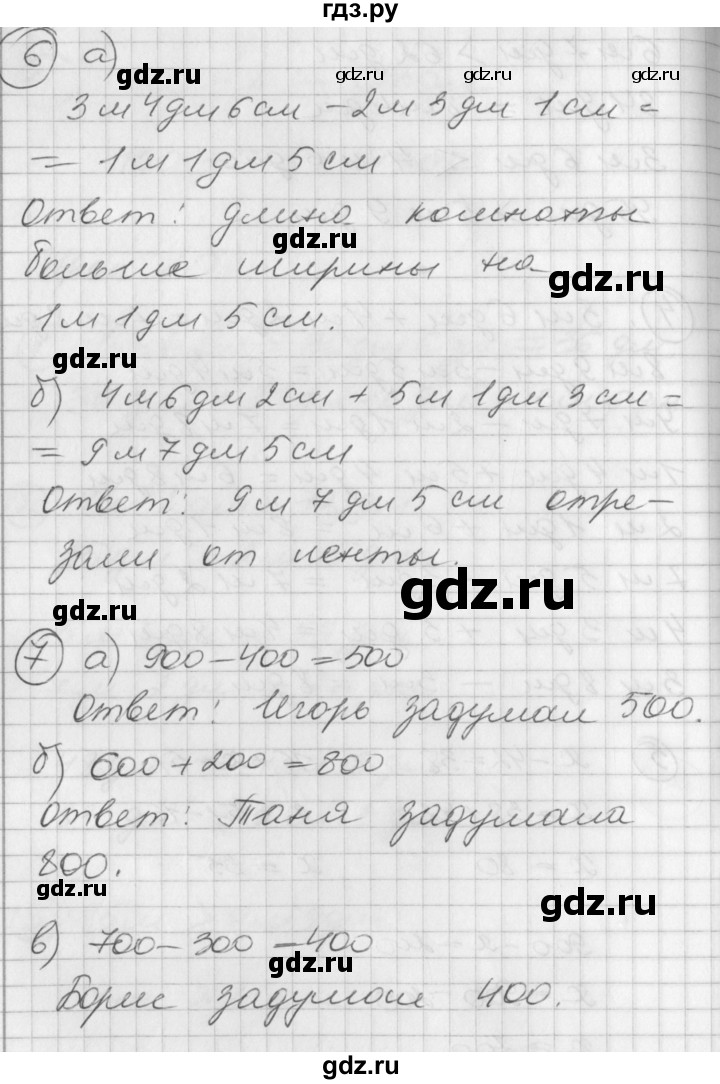 гдз.ру
6 а)
gdz.ru gdz.ru gdz.ru
3 м 4 дм 6 см - 2 м 3 дм 1 см =
= 1 м 1 дм 5 см
Ответ: длина комнаты
gdz.ru
больше ширины на
gdz.ru
1 м 1 дм 5 см.
gdz.ru
б) 4 м 6 дм 2 см + 5 м 1 дм 3 см =
= 9 м 7 дм 5 см
Ответ: 9 м 7 дм 5 см отре-
зали от ленты.
gdz.ru
gdz.ru
7 а) 900 - 400 = 500
Ответ: Игорь задумал 500.
б) 600 + 200 = 800
Ответ: Таня задумала
800.
gdz.ru
gdz.ru
в) 700 - 300 = 400
gdz.ru
Борис задумал 400.
gdz.ru